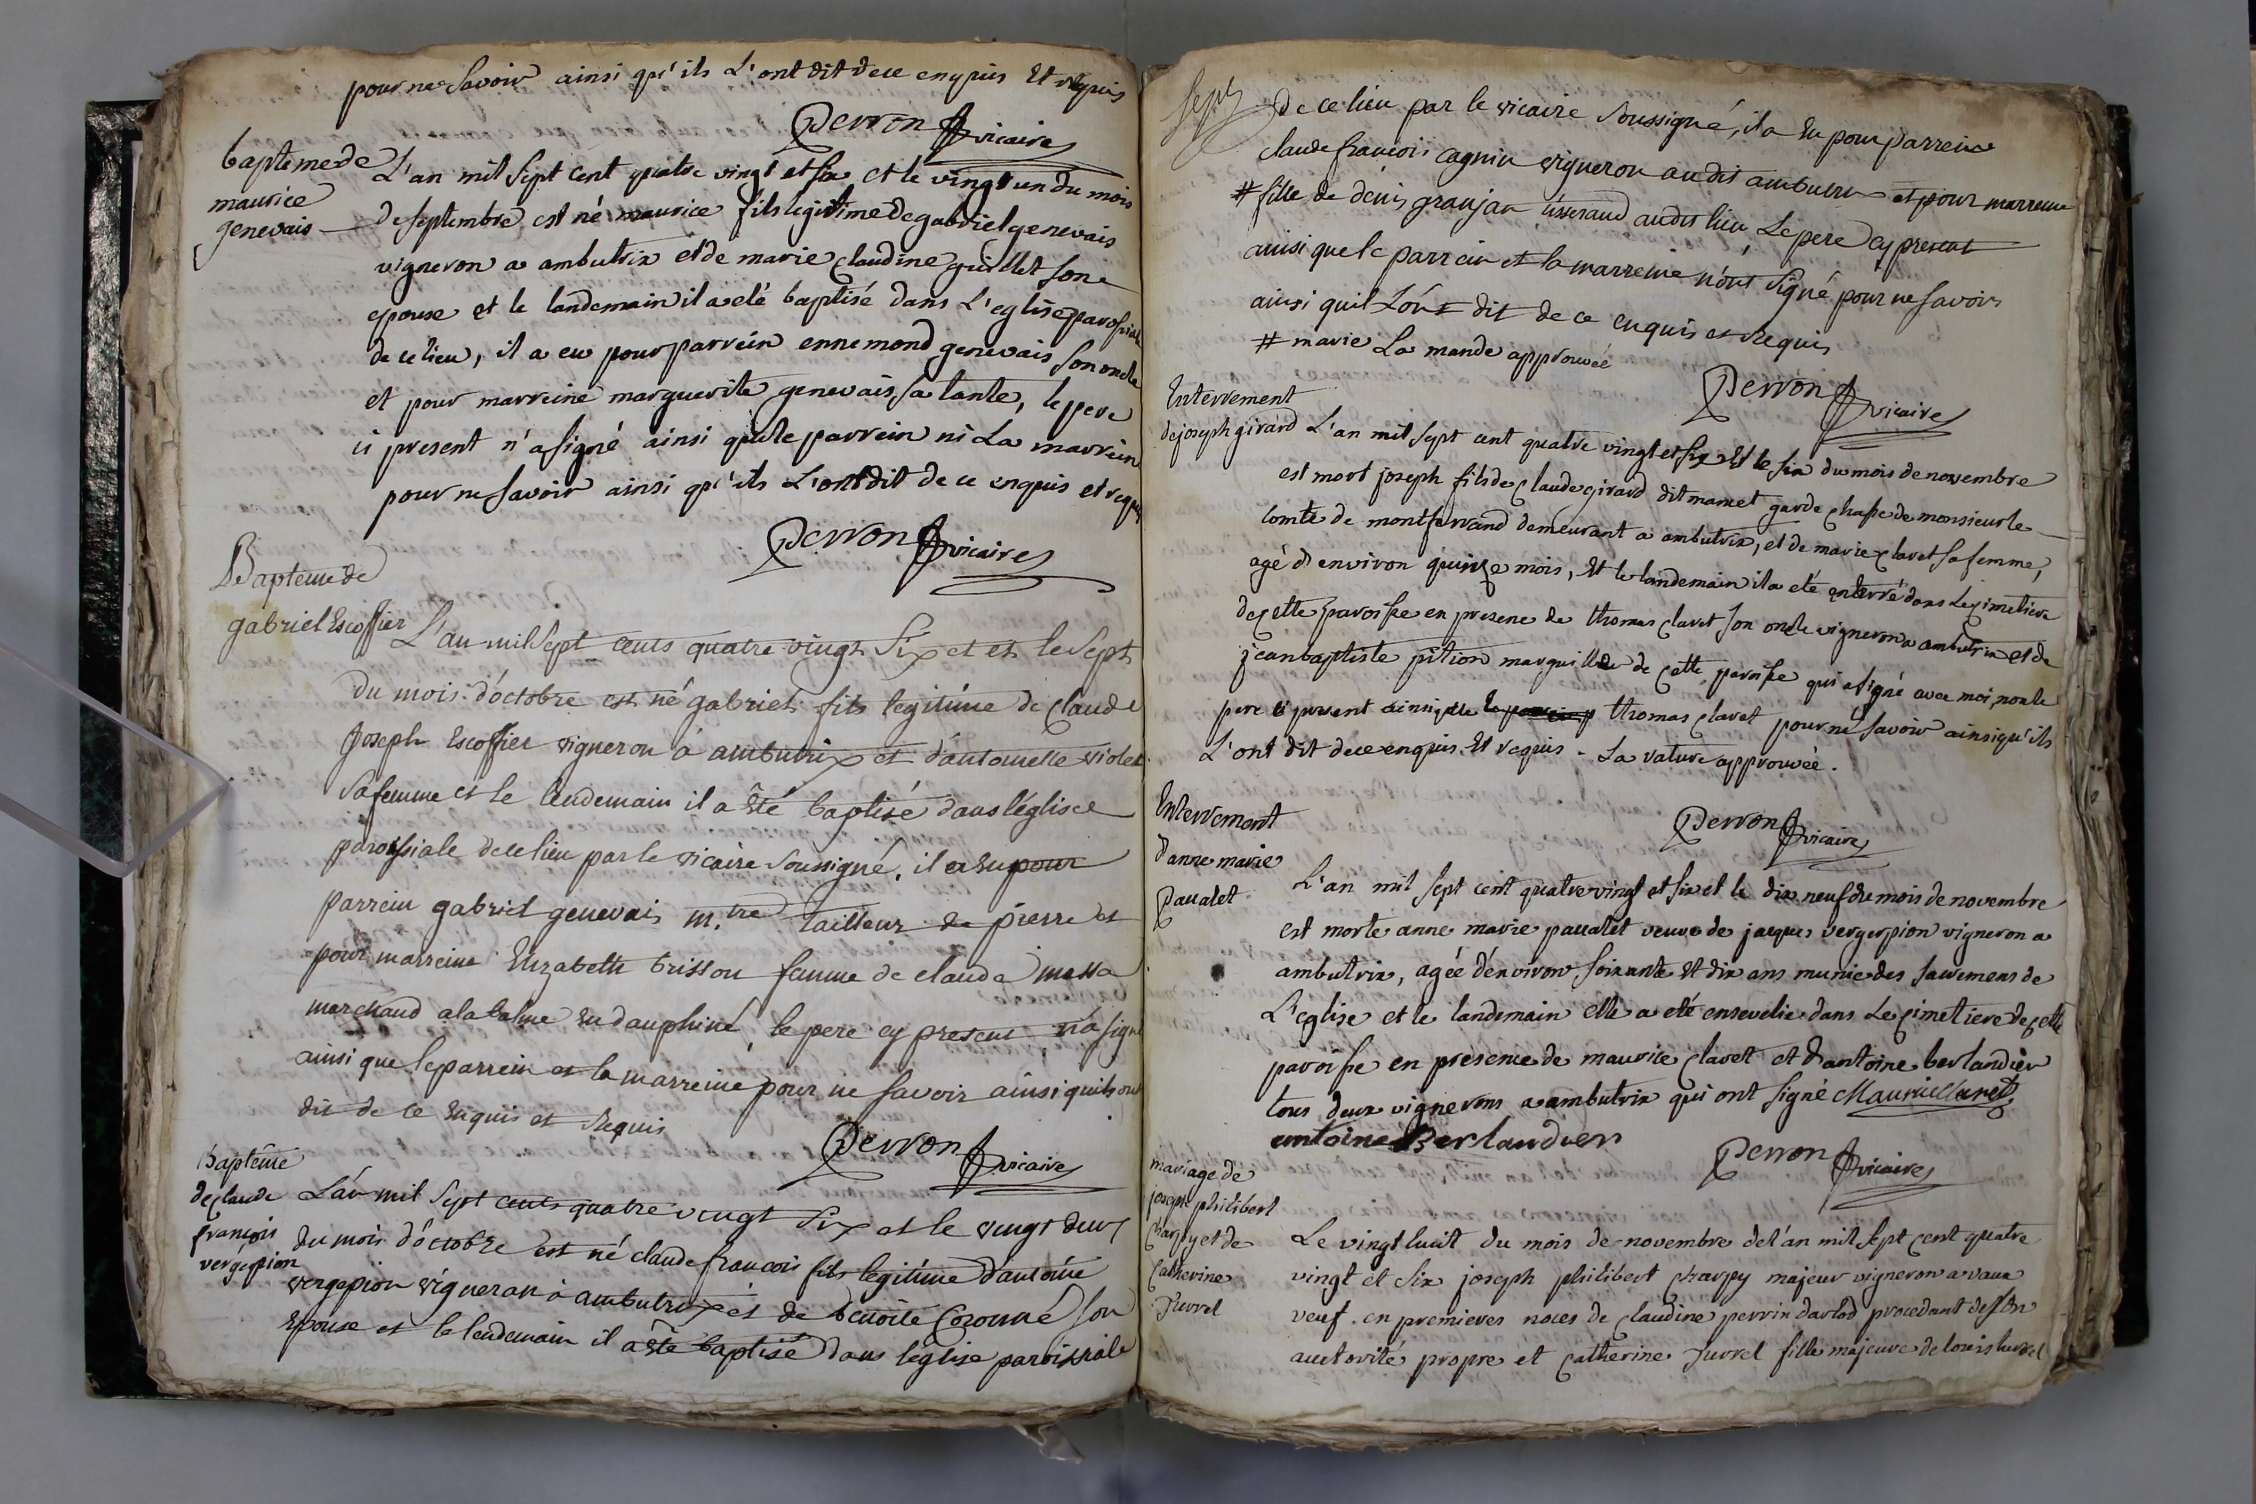 pour ne Savoir ainsi qu'ils L'ont dit de ce enquis Et requis
Perron vicaire
bapteme de
maurice
genevais
L'an mil Sept Cent quatre vingt et six et le vingt un du mois
de septembre est né maurice fils legitime de gabriel genevais
vigneron a ambutrix et de marie claudine guillet son
epouse et le landemain il a eté baptisé dans L'eglise paroissiale
de ce lieu, il a eu pour parrein ennemond genevais son oncle
et pour marreine marguerite genevais sa tante, le pere
ci present n'a signé ainsi que le parrein ni La marreine
pour ne savoir ainsi qu'ils L'ont dit de ce enquis et requis
Perron vicaire
Bapteme de
gabriel Escoffier
L'an mil Sept cents quatre vingt Six et et le Sept
du mois d'octobre est né gabriel fils legitime de Claude
Joseph Escoffier vigneron à ambutrix et d'antoinette violet
Sa femme et le lendemain il a Eté baptisé dans l'église
paroissiale de ce lieu par le vicaire Soussigné, il a Eu pour
parrein gabriel genevais m.tre tailleur de pierre et
pour marreine Elizabeth brisson femme de claude massa
marchand a la balme En dauphiné, le pere cy present n'a signé
ainsi que le parrein et la marreine pour ne Savoir ainsi quils ont
dit de ce Enquis et Requis
Perron vicaire
Bapteme
de claude
françois
vergepion
L'an mil Sept cents quatre vingt Six et le vingt deux
du mois d'octobre est né claude francois fils legitime d'antoine
vergepion vigneron à ambutrix et de benoite Coronné son
Epouse et le lendemain il a Eté baptisé dans l'église paroissiale
Sept
de ce lieu par le vicaire Soussigné, il a Eu pour parrein
claude françois cagnin vigneron au dit ambutrix et pour marreine
# fille de dénis granjan tisserand au dit lieu Le pere cy present
ainsi que le parrein et la marreine n'ont Signé pour ne Savoir
ainsi quil L'ont dit de ce enquis et Requis
# marie La mande approuvée
Perron vicaire
Enterrement
de joseph girard
L'an mil Sept cent quatre vingt et six Et le six du mois de novembre
est mort joseph fils de claude girard dit mamet garde chasse de monsieur le
comte de montferrand demeurant a ambutrix, et de marie claret sa femme,
agé d'environ quinze mois, Et le landemain il a eté enterré dans Le cimetiere
de cette paroisse en presence de thomas claret son oncle vigneron a ambutrix et de
jean baptiste pition marguillier de cette paroisse qui a signé avec moi non le
pere ci present ainsi que thomas claret pour ne savoir ainsi qu'ils
L'ont dit de ce enquis Et requis - La rature approuvée.
Perron vicaire
Enterrement
d'anne marie
Paualet
L'an mil Sept cent quatre vingt et six et le dix neuf du mois de novembre
est morte anne marie paualet veuve de jaques vergepion vigneron a
ambutrix, agée d'environ soixante Et dix ans munie des sacremens de
L'eglise et le landemain elle a eté ensevelie dans Le cimetiere de cette
paroisse en presence de maurice claret et d'antoine berlandier
tous deux vignerons a ambutrix qui ont signé Maurice Claret
antoine Berlandier
Perron vicaire
mariage de
joseph philibert
Charpy et de
Catherine
Jurrel
Le vingt huit du mois de novembre de l'an mil Sept cent quatre
vingt et six joseph philibert charpy majeur vigneron a vaux
veuf en premieres noces de claudine perrin d'arlod procedant de son
auctorité propre et catherine Jurrel fille majeure de louis Jurrel